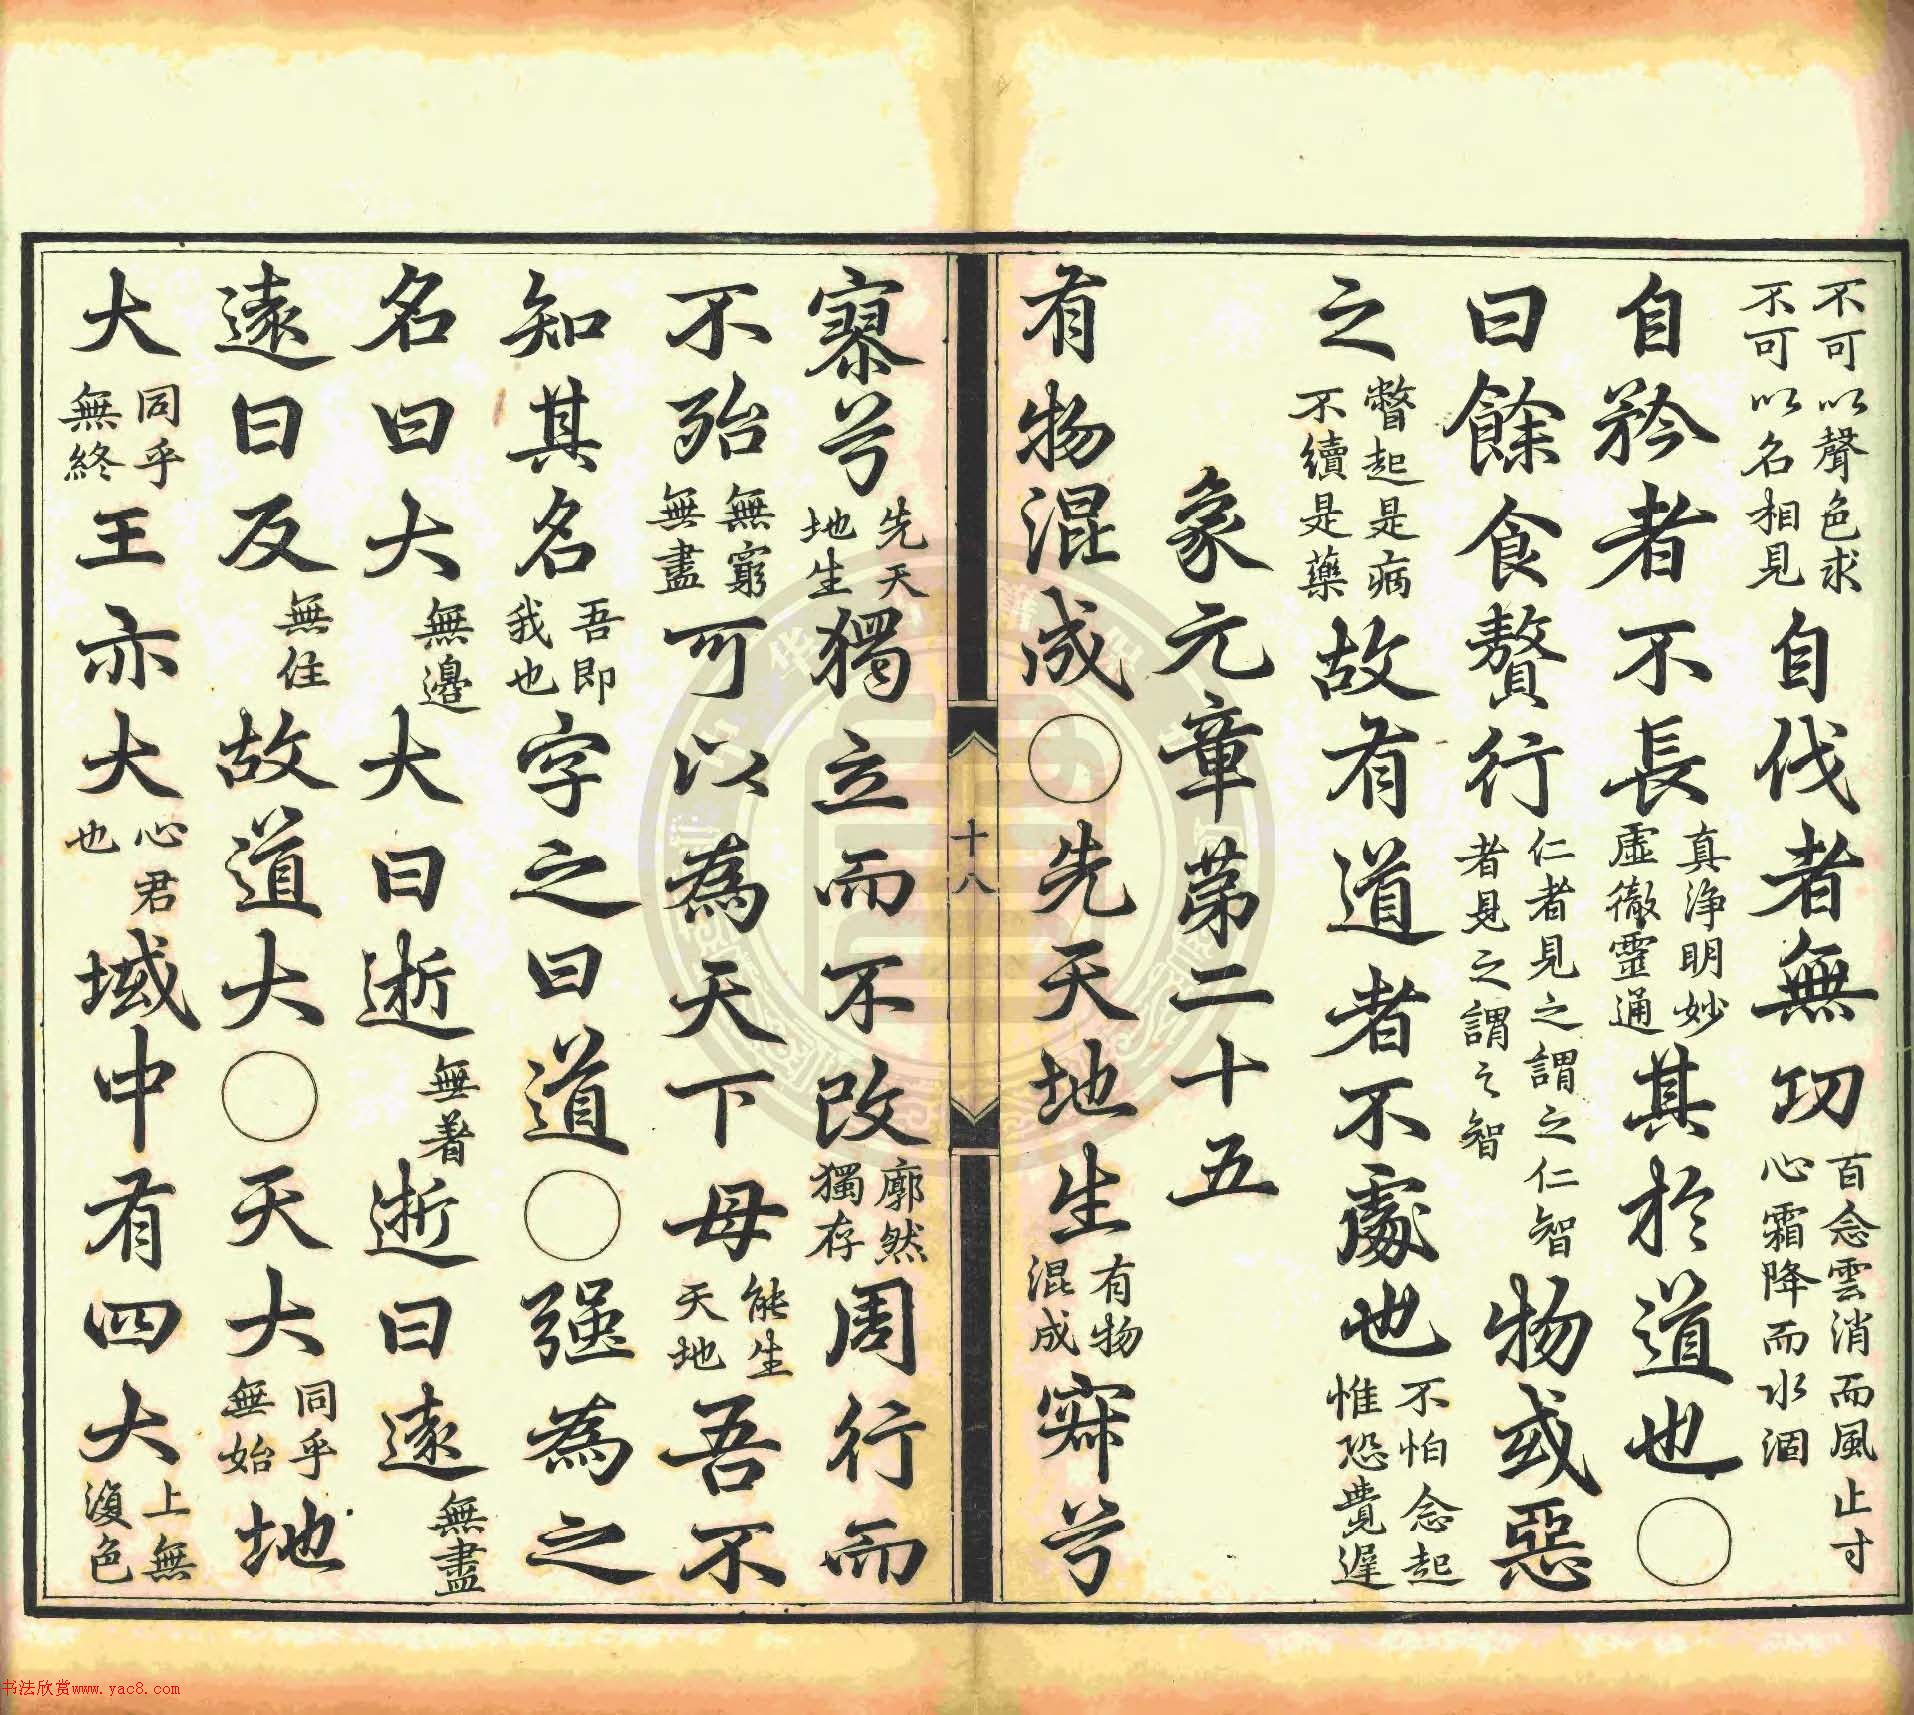 不可以聲色求不可以名相見自伐者無功百念雲消而風止寸心霜降而水涸
自矜者不長真淨明妙虛徹靈通其於道也〇
曰餘食贅行仁者見之謂之仁智者見之謂之智物或惡
之瞥起是病不續是藥故有道者不處也不怕念起惟恐費遲
象元章第二十五
有物混成〇先天地生有物混成寂兮
十八
寥兮先天地生獨立而不改廓然獨存周行而
不殆無窮無盡可以為天下母能生天地吾不
知其名吾即我也字之曰道〇强為之
名曰大無邊大曰逝無著逝曰遠無盡
遠曰反無住故道大〇天大同乎無始地
大同乎無終王亦大心君也域中有四大上無復色
书法欣赏www.yac8.com